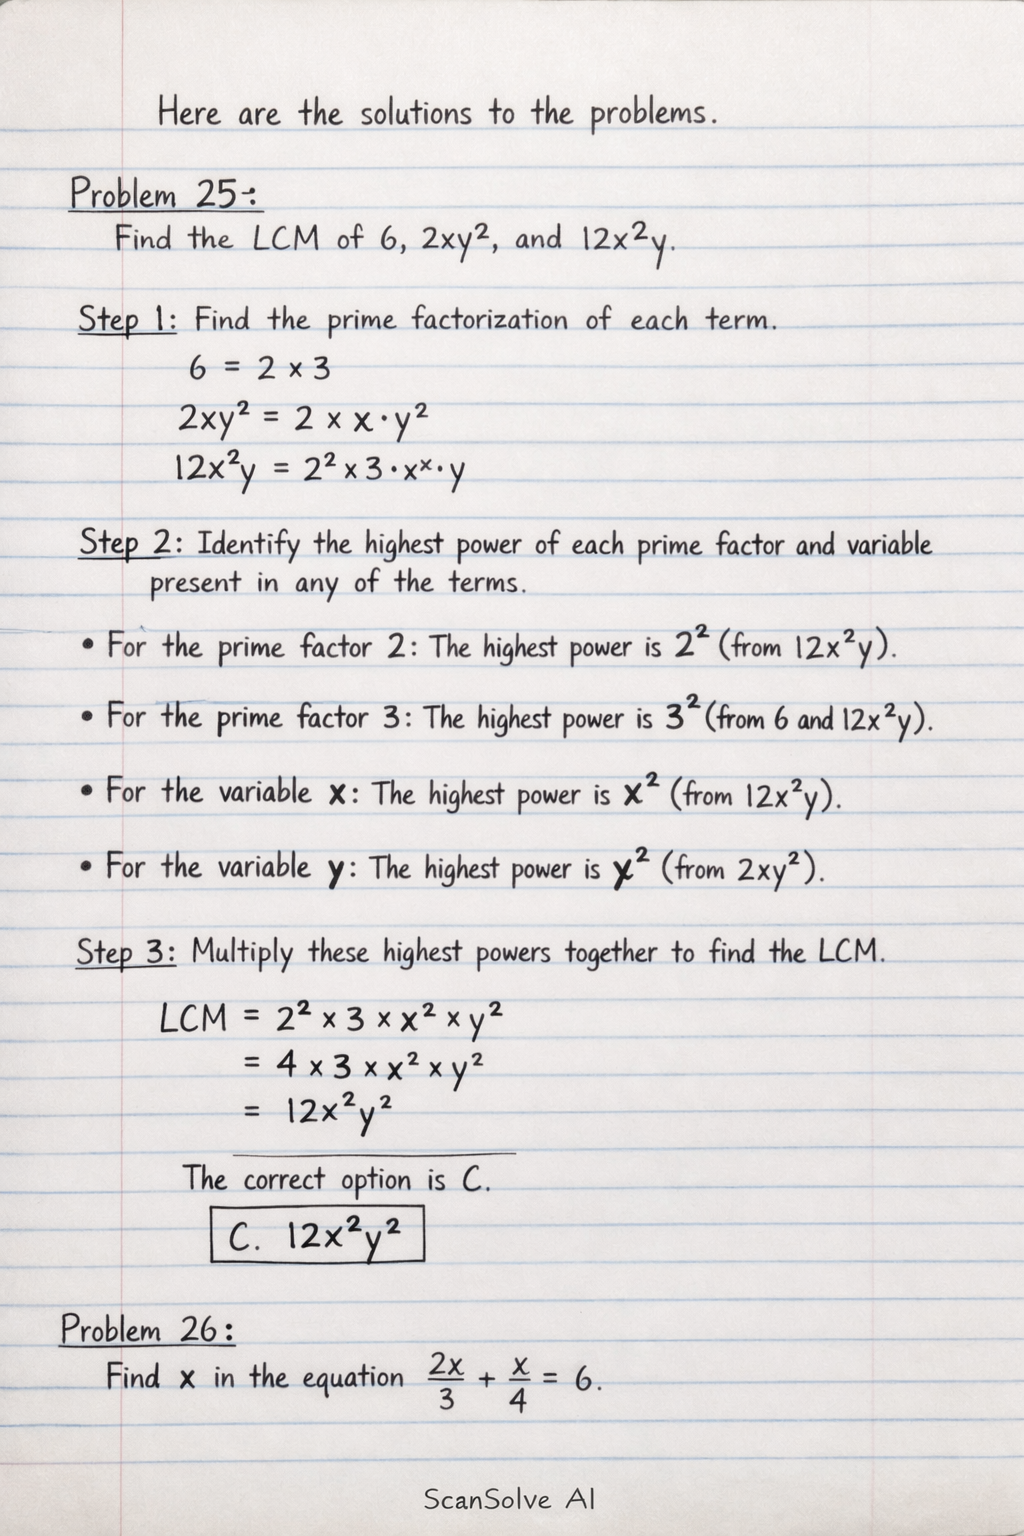 Here are the solutions to the problems.
Problem 25-:
Find the LCM of 6, 2xy², and 12x²y.
Step 1: Find the prime factorization of each term.
6 = 2 × 3
2xy² = 2 × x · y²
12x²y = 2² × 3 · xˣ · y
Step 2: Identify the highest power of each prime factor and variable
present in any of the terms.
• For the prime factor 2: The highest power is 2² (from 12x²y).
• For the prime factor 3: The highest power is 3² (from 6 and 12x²y).
• For the variable x: The highest power is x² (from 12x²y).
• For the variable y: The highest power is y² (from 2xy²).
Step 3: Multiply these highest powers together to find the LCM.
LCM = 2² × 3 × x² × y²
= 4 × 3 × x² × y²
= 12x²y²
The correct option is C.
C. 12x²y²
Problem 26:
Find x in the equation 2x/3 + x/4 = 6.
ScanSolve AI